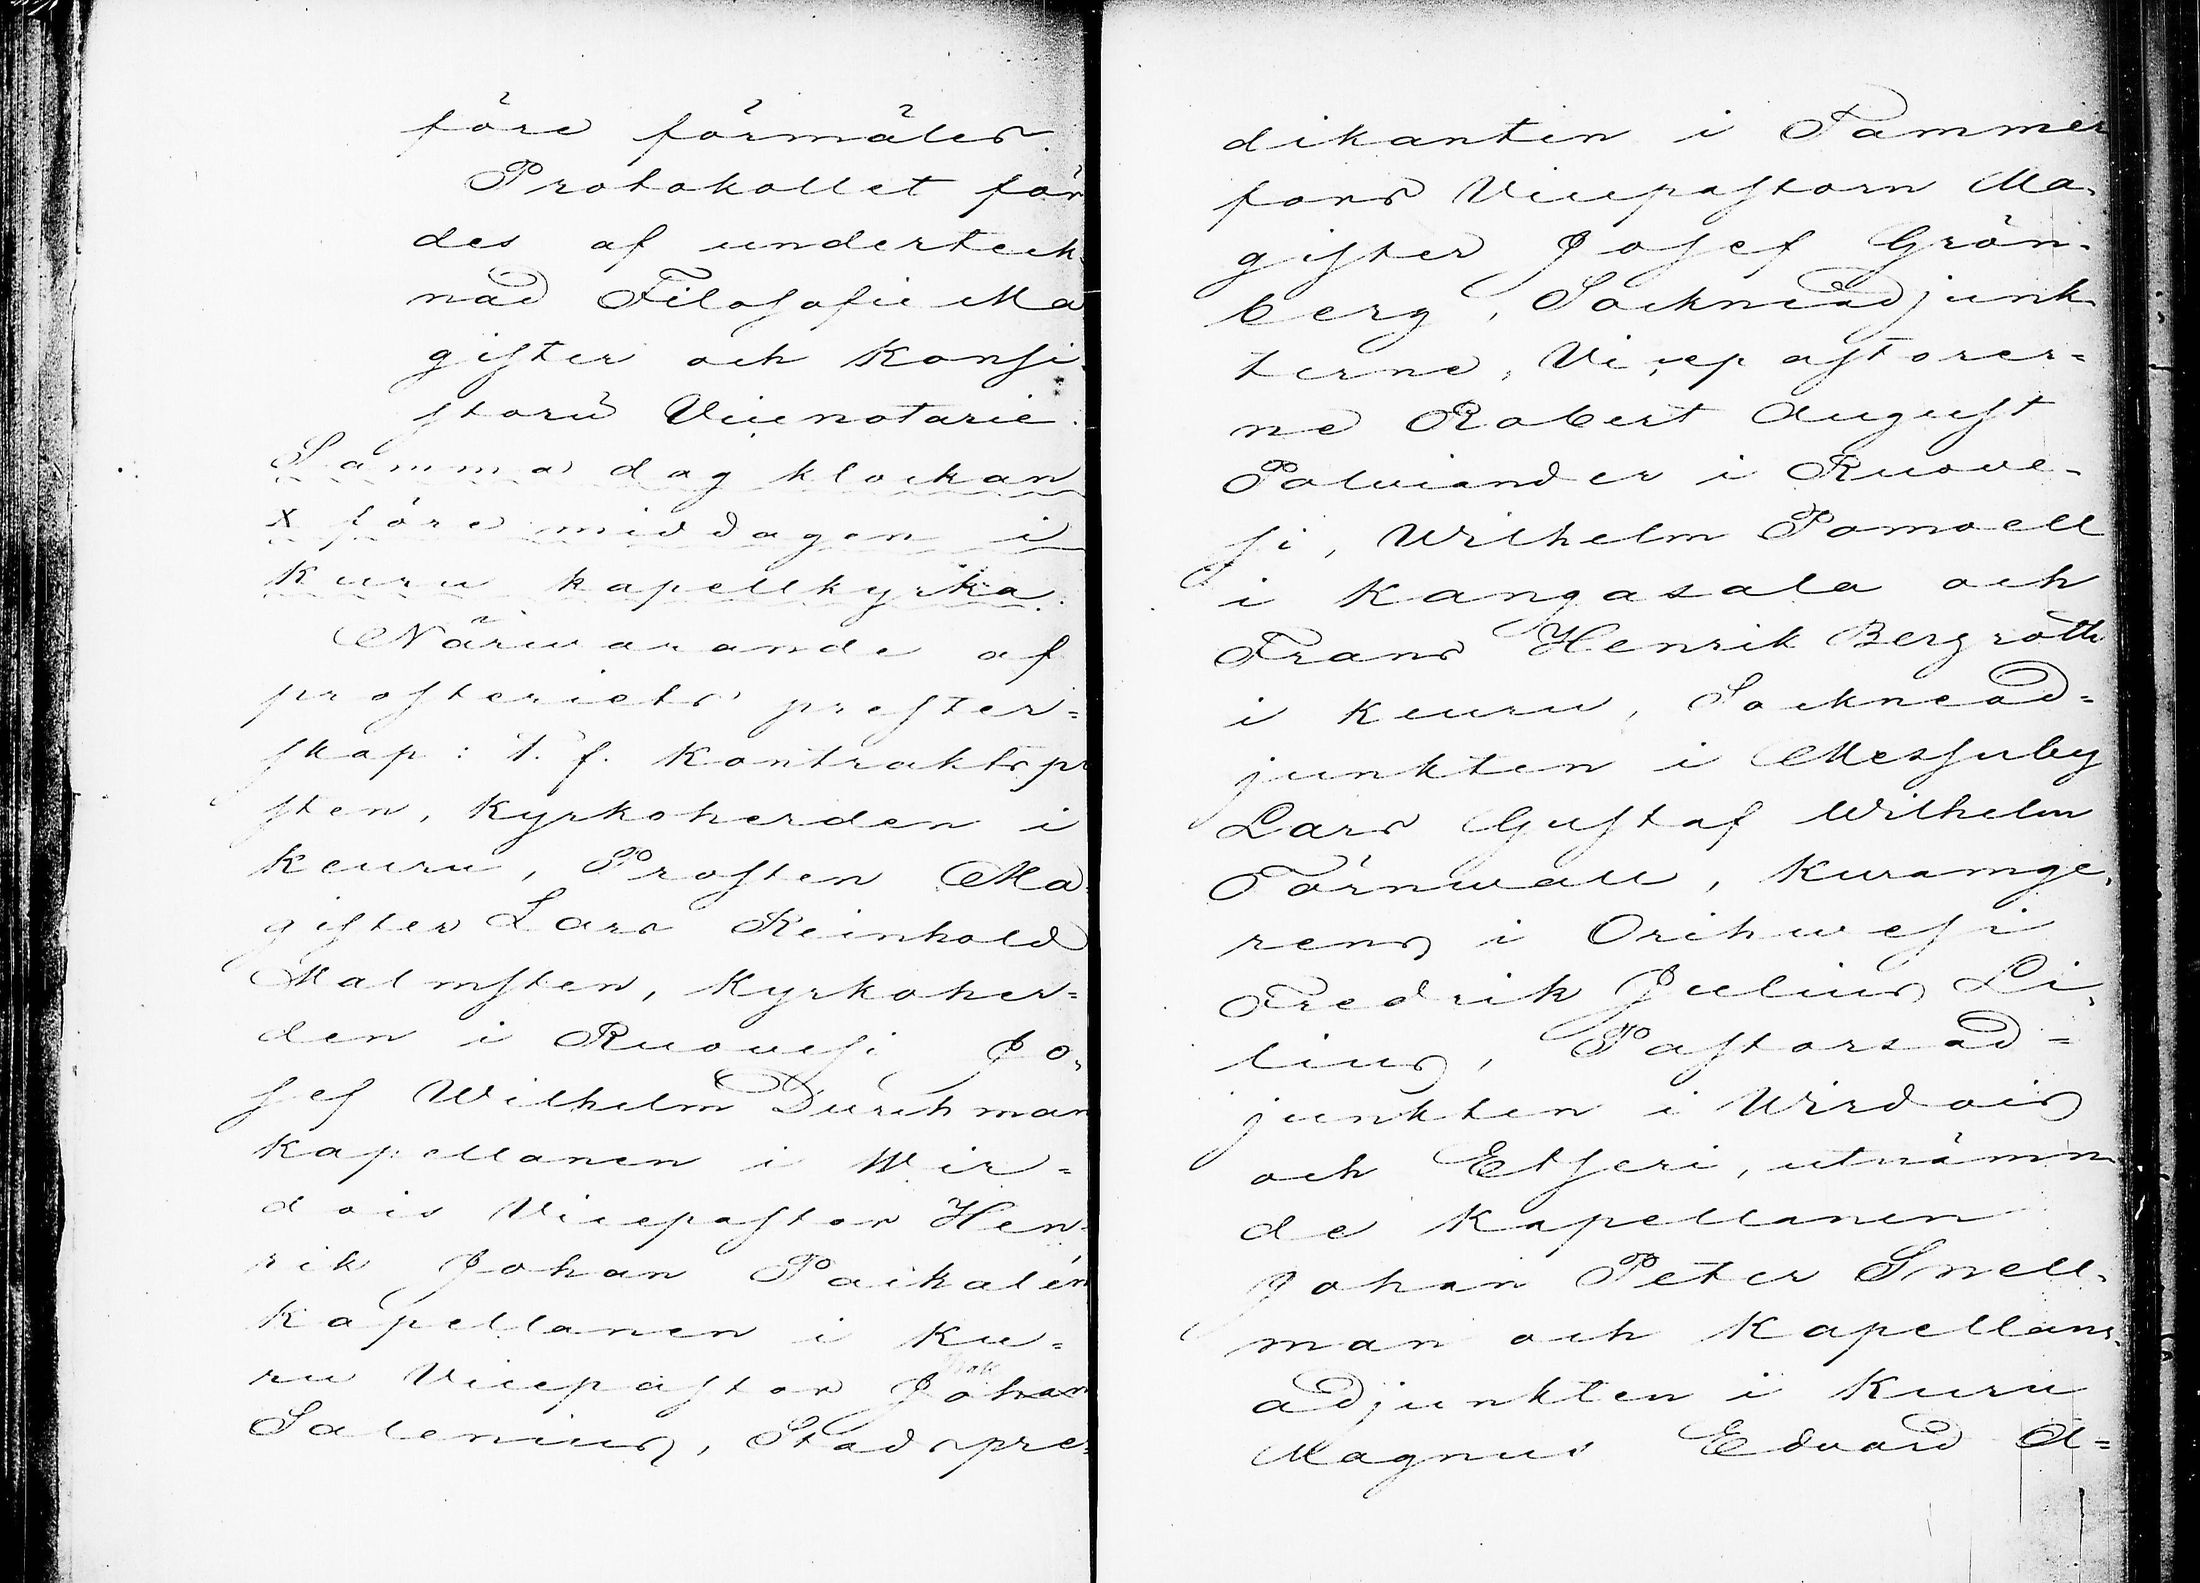 före förmäles.
Protokollet för
des af underteck-
nad Filosofie Ma
gister och Konsi-
storii Vicenotarie.
Samma dag klockan
X före middagen i
Kuru kapellkyrka.
Närwarande af
prosteriets prester-
skap: t. f. Kontraktspr
sten, Kyrkoherden i
Keuru, Prosten Ma-
gister Lars Reinhold
Malmsten, Kyrkoher-
den i Ruovesi, Jo-
sef Wilhelm Durchman
Kapellanen i Wir-
dois Vicepastor Hen-
rik Johan Paikalén
Kapellanen i Ku-
ru Vicepastor Johan
Salenius, Stadspre-
dikanten i Tammer
fors Vicepastorn Ma-
gister Josef Grön-
berg, Sockneadjunk
terne, Vicepastorer-
ne Robert August
Polviander i Ruove-
si, Wilhelm Pomoell
i Kangasala och
Frans Henrik Bergroth
i Keuru, Socknead-
junkten i Messuby
Lars Gustaf Wilhelm
Törnwall, Kuramge-
rens i Orihwesi
Fredrik Julius Li-
lius, Pastorsad-
junkten i Wirdois
och Etseri, utnämn
de Kapellanen
Johan Peter Snell-
man och Kapellans-
adjunkten i Kuru
Magnus Edvard A-